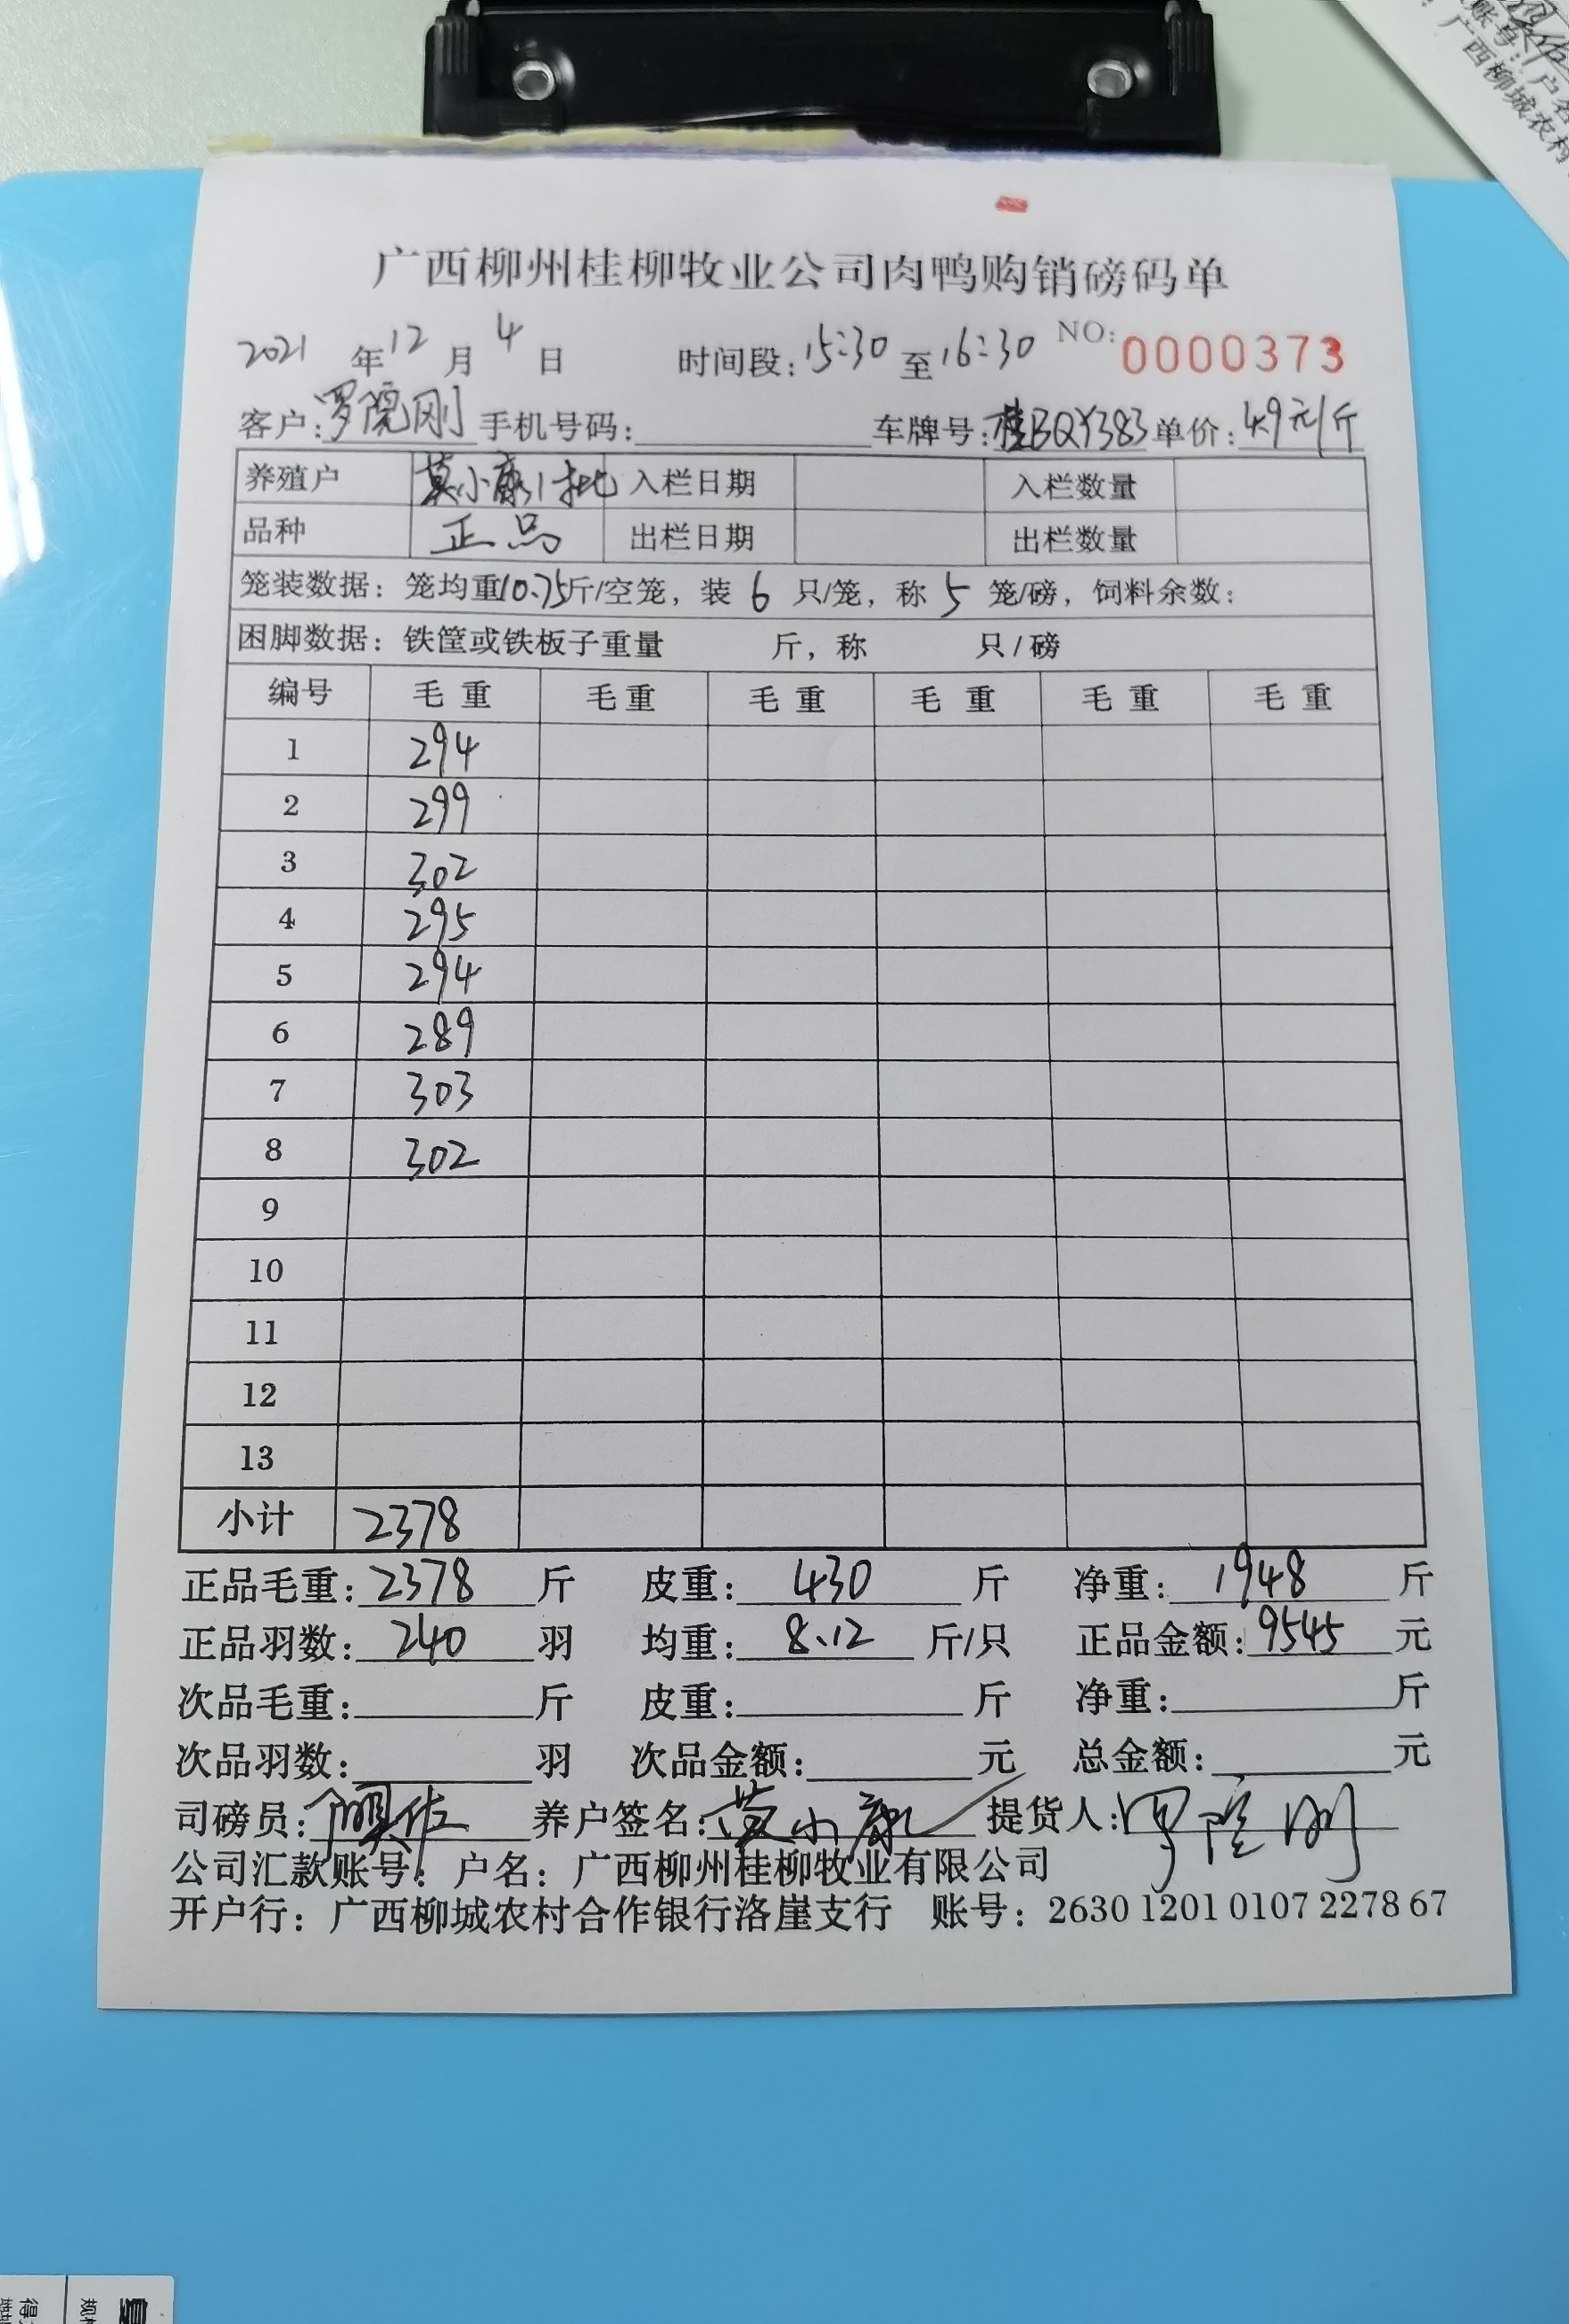 广西柳州桂柳牧业公司肉鸭购销磅码单
2021 年 12 月 4 日 时间段：15:30 至 16:30 NO: 0000373
客户：罗院刚 手机号码： 车牌号：桂BQY383 单价：4.9元/斤
养殖户 莫小康1批 入栏日期 入栏数量
品种 正品 出栏日期 出栏数量
笼装数据：笼均重10.75斤/空笼，装 6 只/笼，称 5 笼/磅，饲料余数：
困脚数据：铁筐或铁板子重量 斤，称 只/磅
编号 毛重 毛重 毛重 毛重 毛重 毛重
1 294
2 299
3 302
4 295
5 294
6 289
7 303
8 302
9
10
11
12
13
小计 2378
正品毛重：2378 斤 皮重：430 斤 净重：1948 斤
正品羽数：240 羽 均重：8.12 斤/只 正品金额：9545 元
次品毛重： 斤 皮重： 斤 净重： 斤
次品羽数： 羽 次品金额： 元 总金额： 元
司磅员： 养户签名：莫小康 提货人：罗院刚
公司汇款账号：户名：广西柳州桂柳牧业有限公司
开户行：广西柳城农村合作银行洛崖支行 账号：2630 1201 0107 2278 67
账号：户名
广西柳城农村